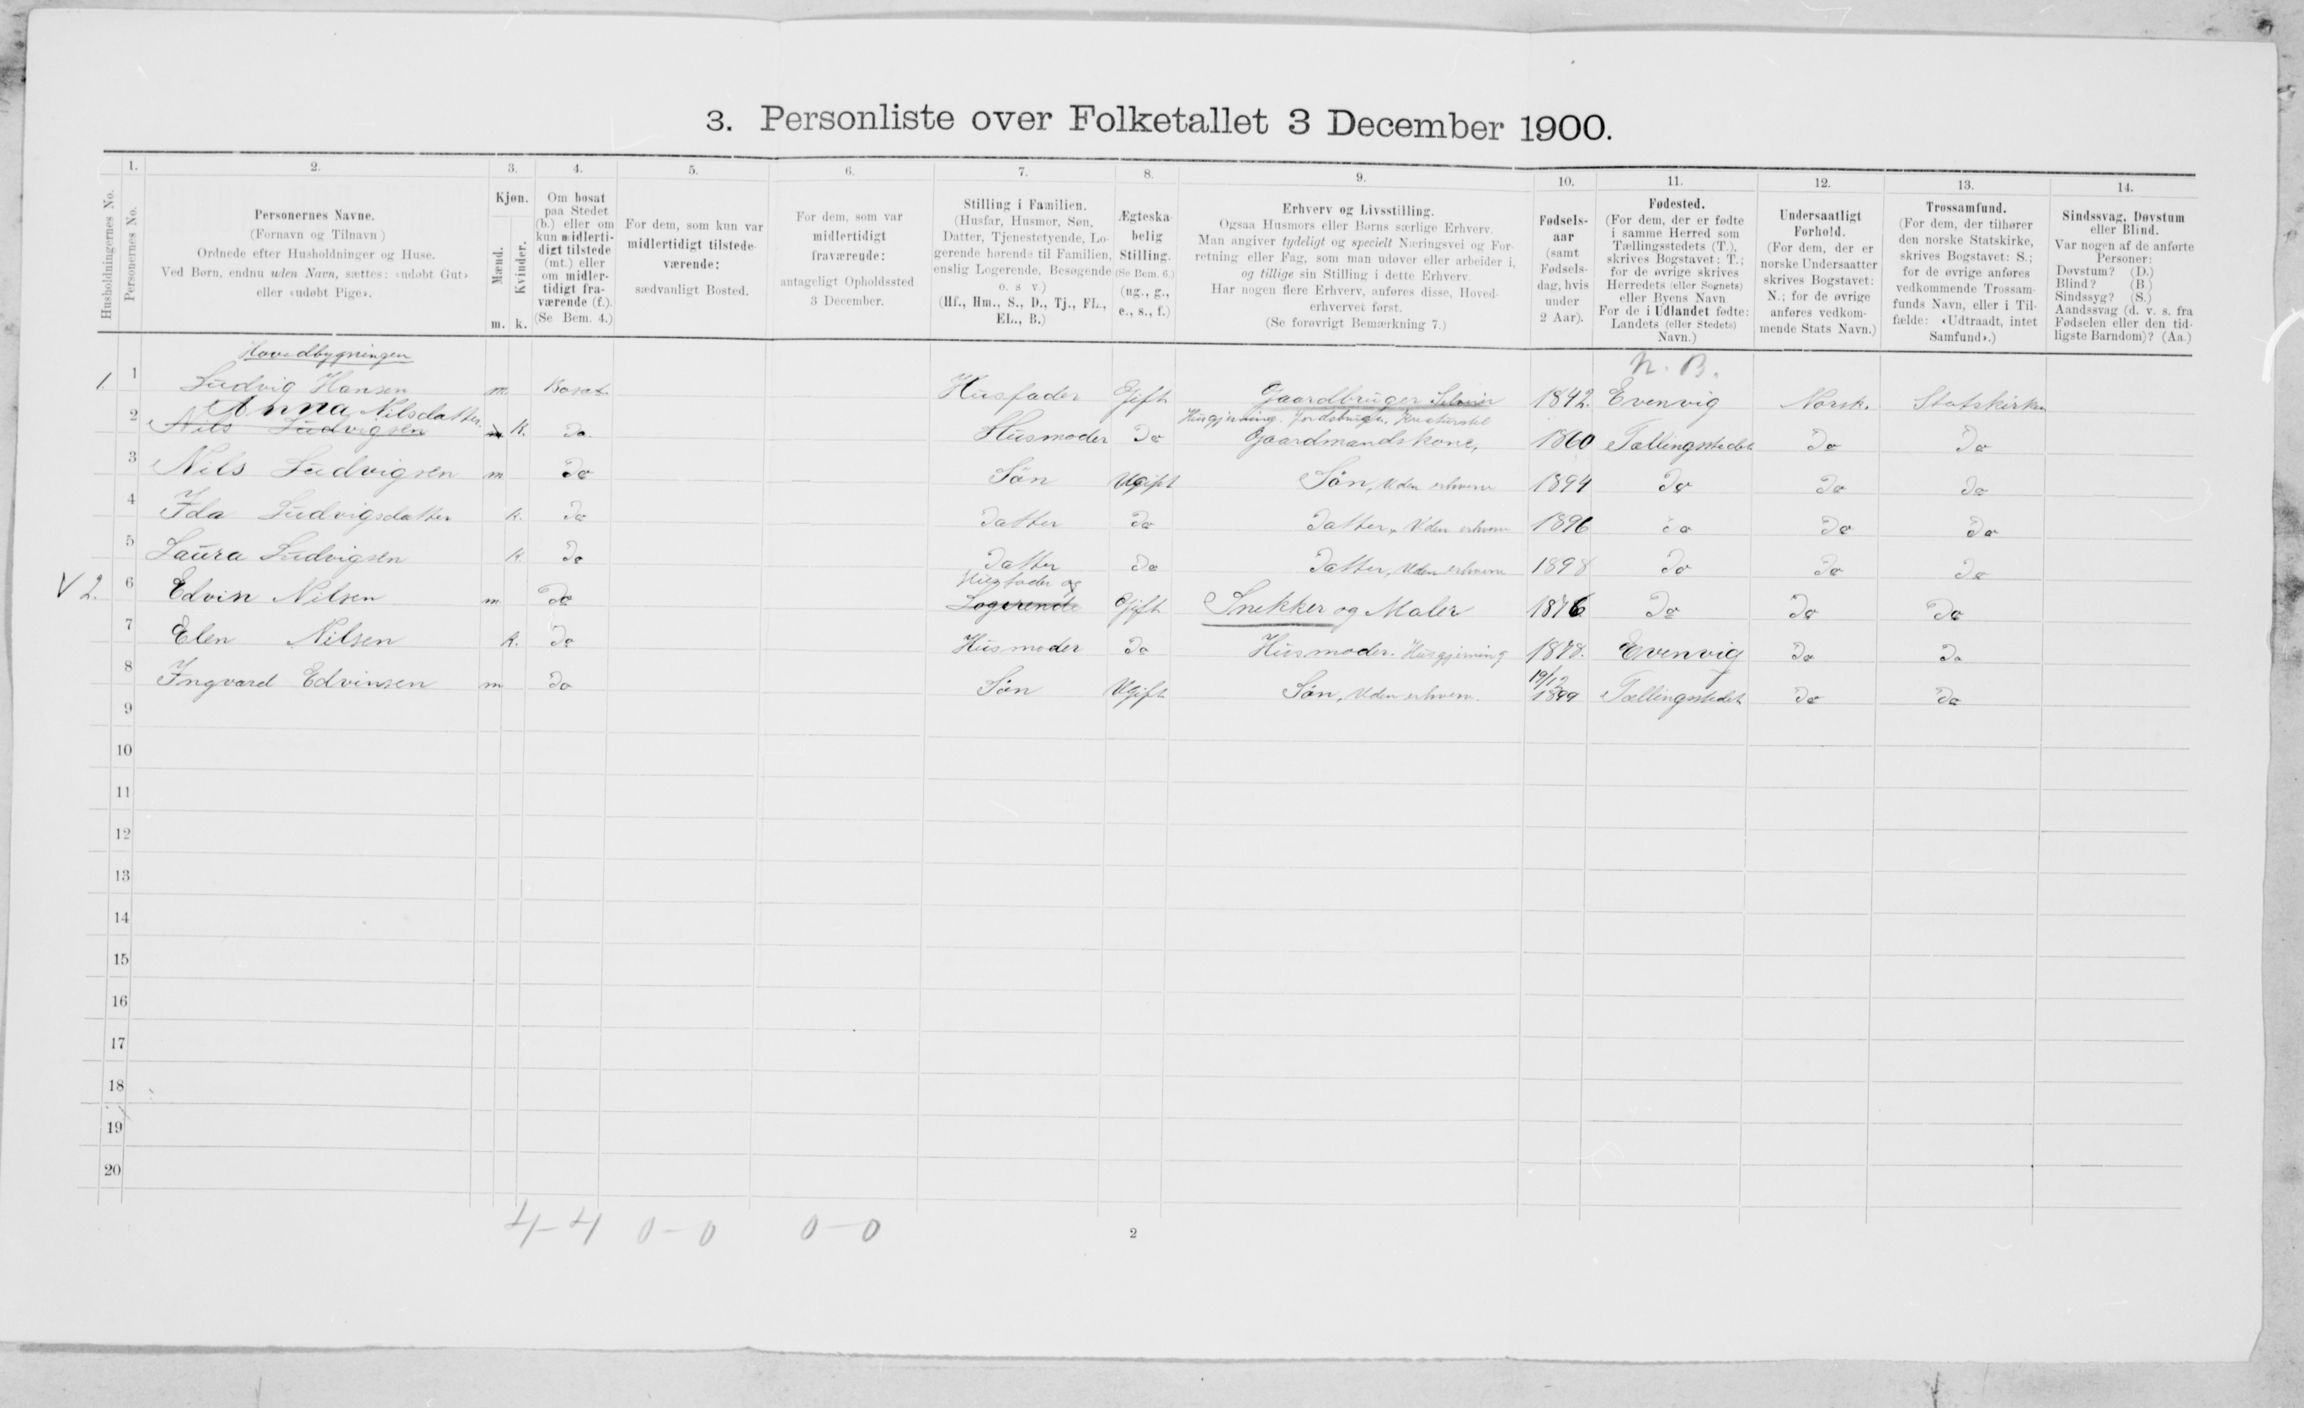 3. Personliste over Folketallet 3 December 1900.
1. 2. 3. 4. 5. 6. 7. 8. 9. 10. 11. 12. 13. 14.
Husholdningernes No.
Personernes No.
Personernes Navne.
(Fornavn og Tilnavn)
Ordnede efter Husholdninger og Huse.
Ved Børn, endnu uden Navn, sættes: «udøbt Gut»
eller «udøbt Pige».
Kjøn.
Mænd.
Kvinder.
m. k.
Om bosat
paa Stedet
(b.) eller om
kun midlerti-
digt tilstede
(mt.) eller
om midler-
tidigt fra-
værende (f.).
(Se Bem. 4.)
For dem, som kun var
midlertidigt tilstede-
værende:
sædvanligt Bosted.
For dem, som var
midlertidigt
fraværende:
antageligt Opholdssted
3 December.
Stilling i Familien.
(Husfar, Husmor, Søn,
Datter, Tjenestetyende, Lo-
gerende hørende til Familien,
enslig Logerende, Besøgende
o. s v.)
(Hf., Hm., S., D., Tj., FL.,
EL., B.)
Ægteska-
belig
Stilling.
(Se Bem. 6.)
(ug., g.,
e., s., f.)
Erhverv og Livsstilling.
Ogsaa Husmors eller Børns særlige Erhverv.
Man angiver tydeligt og specielt Næringsvei og For-
retning eller Fag, som man udøver eller arbeider i,
og tillige sin Stilling i dette Erhverv.
Har nogen flere Erhverv, anføres disse, Hoved-
erhvervet først.
(Se forøvrigt Bemærkning 7.)
Fødsels-
aar
(samt
Fødsels-
dag, hvis
under
2 Aar).
Fødested.
(For dem, der er fødte
i samme Herred som
Tællingsstedets (T.),
skrives Bogstavet: T.;
for de øvrige skrives
Herredets (eller Sognets)
eller Byens Navn
For de i Udlandet fødte:
Landets (eller Stedets)
Navn.)
Undersaatligt
Forhold.
(For dem, der er
norske Undersaatter
skrives Bogstavet:
N.; for de øvrige
anføres vedkom-
mende Stats Navn.)
Trossamfund.
(For dem, der tilhører
den norske Statskirke,
skrives Bogstavet: S.;
for de øvrige anføres
vedkommende Trossam-
funds Navn, eller i Til-
fælde: «Udtraadt, intet
Samfund».)
Sindssvag, Døvstum
eller Blind.
Var nogen af de anførte
Personer:
Døvstum? (D.)
Blind? (B.)
Sindssyg? (S.)
Aandssvag (d. v. s. fra
Fødselen eller den tid-
ligste Barndom)? (Aa.)
Hovedbygningen
N. B.
1. 1 Ludvig Hansen m Bosat Husfader Gift Gaardbruger Selveier 1842. Evenvig Norsk. Statskirken
Anna Nilsdatter. Husgjerning. Jordsbrugs, Kreaturstel
2 Nils Ludvigsen K. Do. Husmoder Do Gaardmandskone, 1860 Tællingsstedet Do Do
3 Nils Ludvigsen m Do Sön Ugift Sön, Uden erhverv 1894 Do Do Do
4 Ida Ludvigsdatter K. Do Datter Do Datter, Uden erhverv 1896 do Do Do
5 Laura Ludvigsen K. Do Datter Do Datter, Uden erhverv 1898 Do Do Do
Husfader og
V 2. 6 Edvin Nilsen m Do Logerende Gift Snekker og Maler 1876 Do Do Do
7 Elen Nilsen K. Do Husmoder Do Husmoder. Husgjerning 1878. Evenvig Do Do
19/12
8 Ingvard Edvinsen m Do Sön Ugift Sön, Uden erhverv. 1899 Tællingsstedet Do Do
9
10
11
12
13
14
15
16
17
18
19
20
4-4 0-0 0-0
2